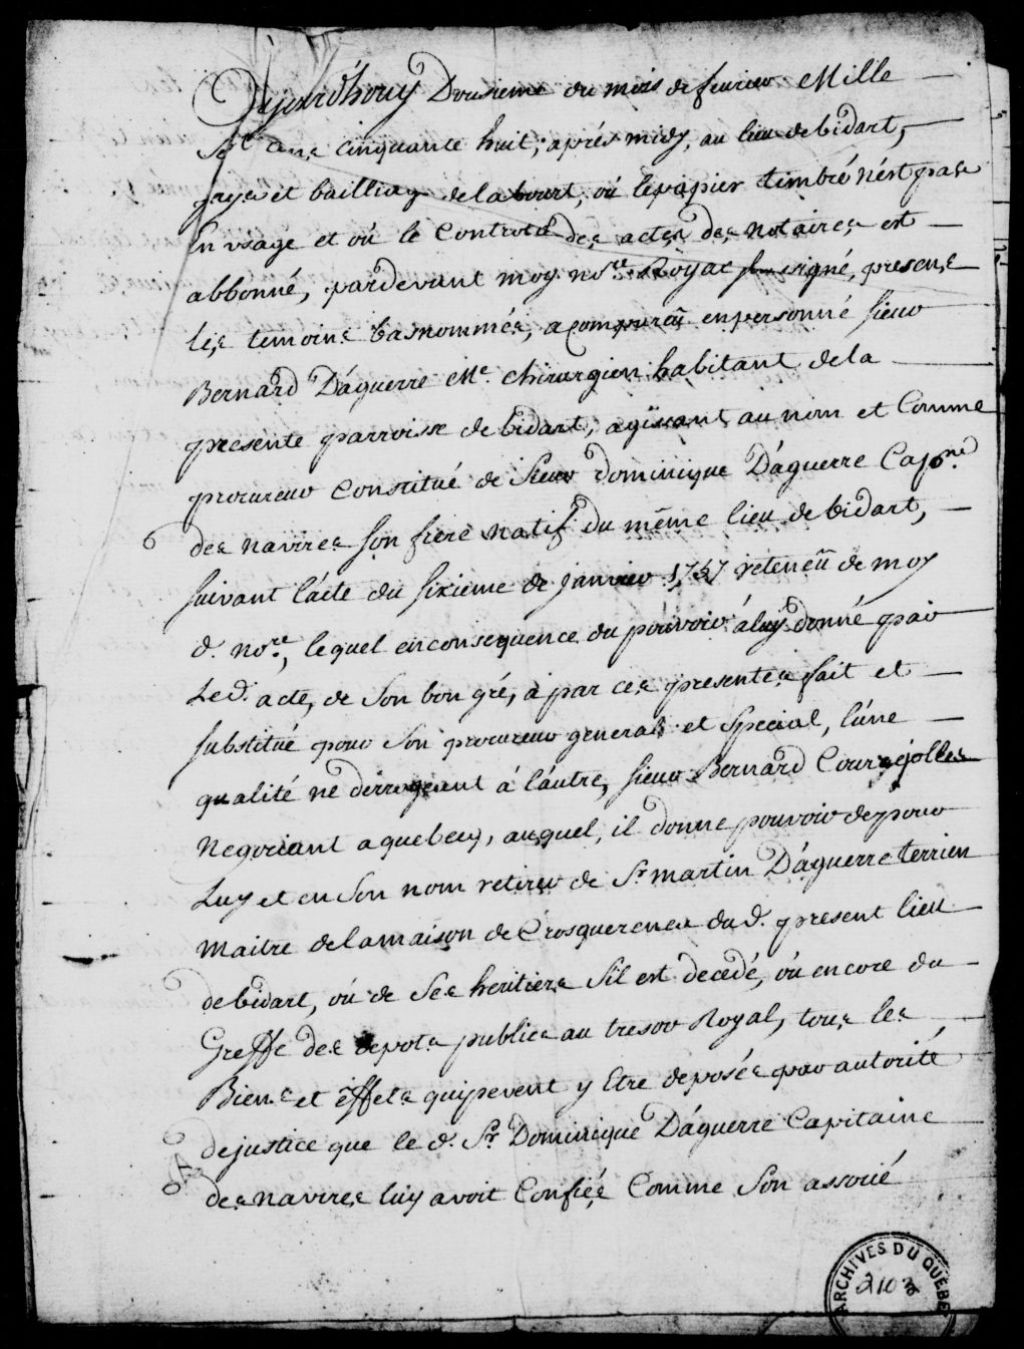 Aujourd'houy Dousieme du mois de fevrier Mille
Sept cens cinquante huit, aprés midy, au lieu de bidart,
pays et bailliage de labourt, où le papier timbré n'ést pas
En usage et où le Controlle des actes des notaires est
abbonné, pardevant moy nore. Royal soussigné, presens
les temoins bas nommés, a comparu en personne sieur
Bernard D'aguerre Me. chirurgien habitant de la
presente parroisse de bidart, agissant au nom et Comme
procureur Constitué de Sieur Dominique D'aguerre Capne.
des navires son frere natif du même lieu de bidart,
suivant l'acte du sixieme de janvier 1757 reteneü de moy
d. nore., lequel en consequence du pouvoir à luy donné par
Led. acte, de Son bon gré, à par ces presentes fait et
substitué pour Son procureur general et Special, l'une
qualité ne derrogeant à l'autre, sieur Bernard Courrejolles
Negociant a quebecq, auquel, il donne pouvoir de pour
Luy et en Son nom retirer de Sr. martin D'aguerre terrien
maitre de la maison de Crosquerenea du d. present lieu
de bidart, où de Ses heritiers S'il est decedé, où encore du
Greffe des depots publics au tresor Royal, tous les
Biens et effets qui peuvent y Etre deposés par autorité
de justice que le d. Sr. Dominique D'aguerre Capitaine
des navires luy avoit Confiés Comme Son associé
ARCHIVES DU QUÉBEC
2103